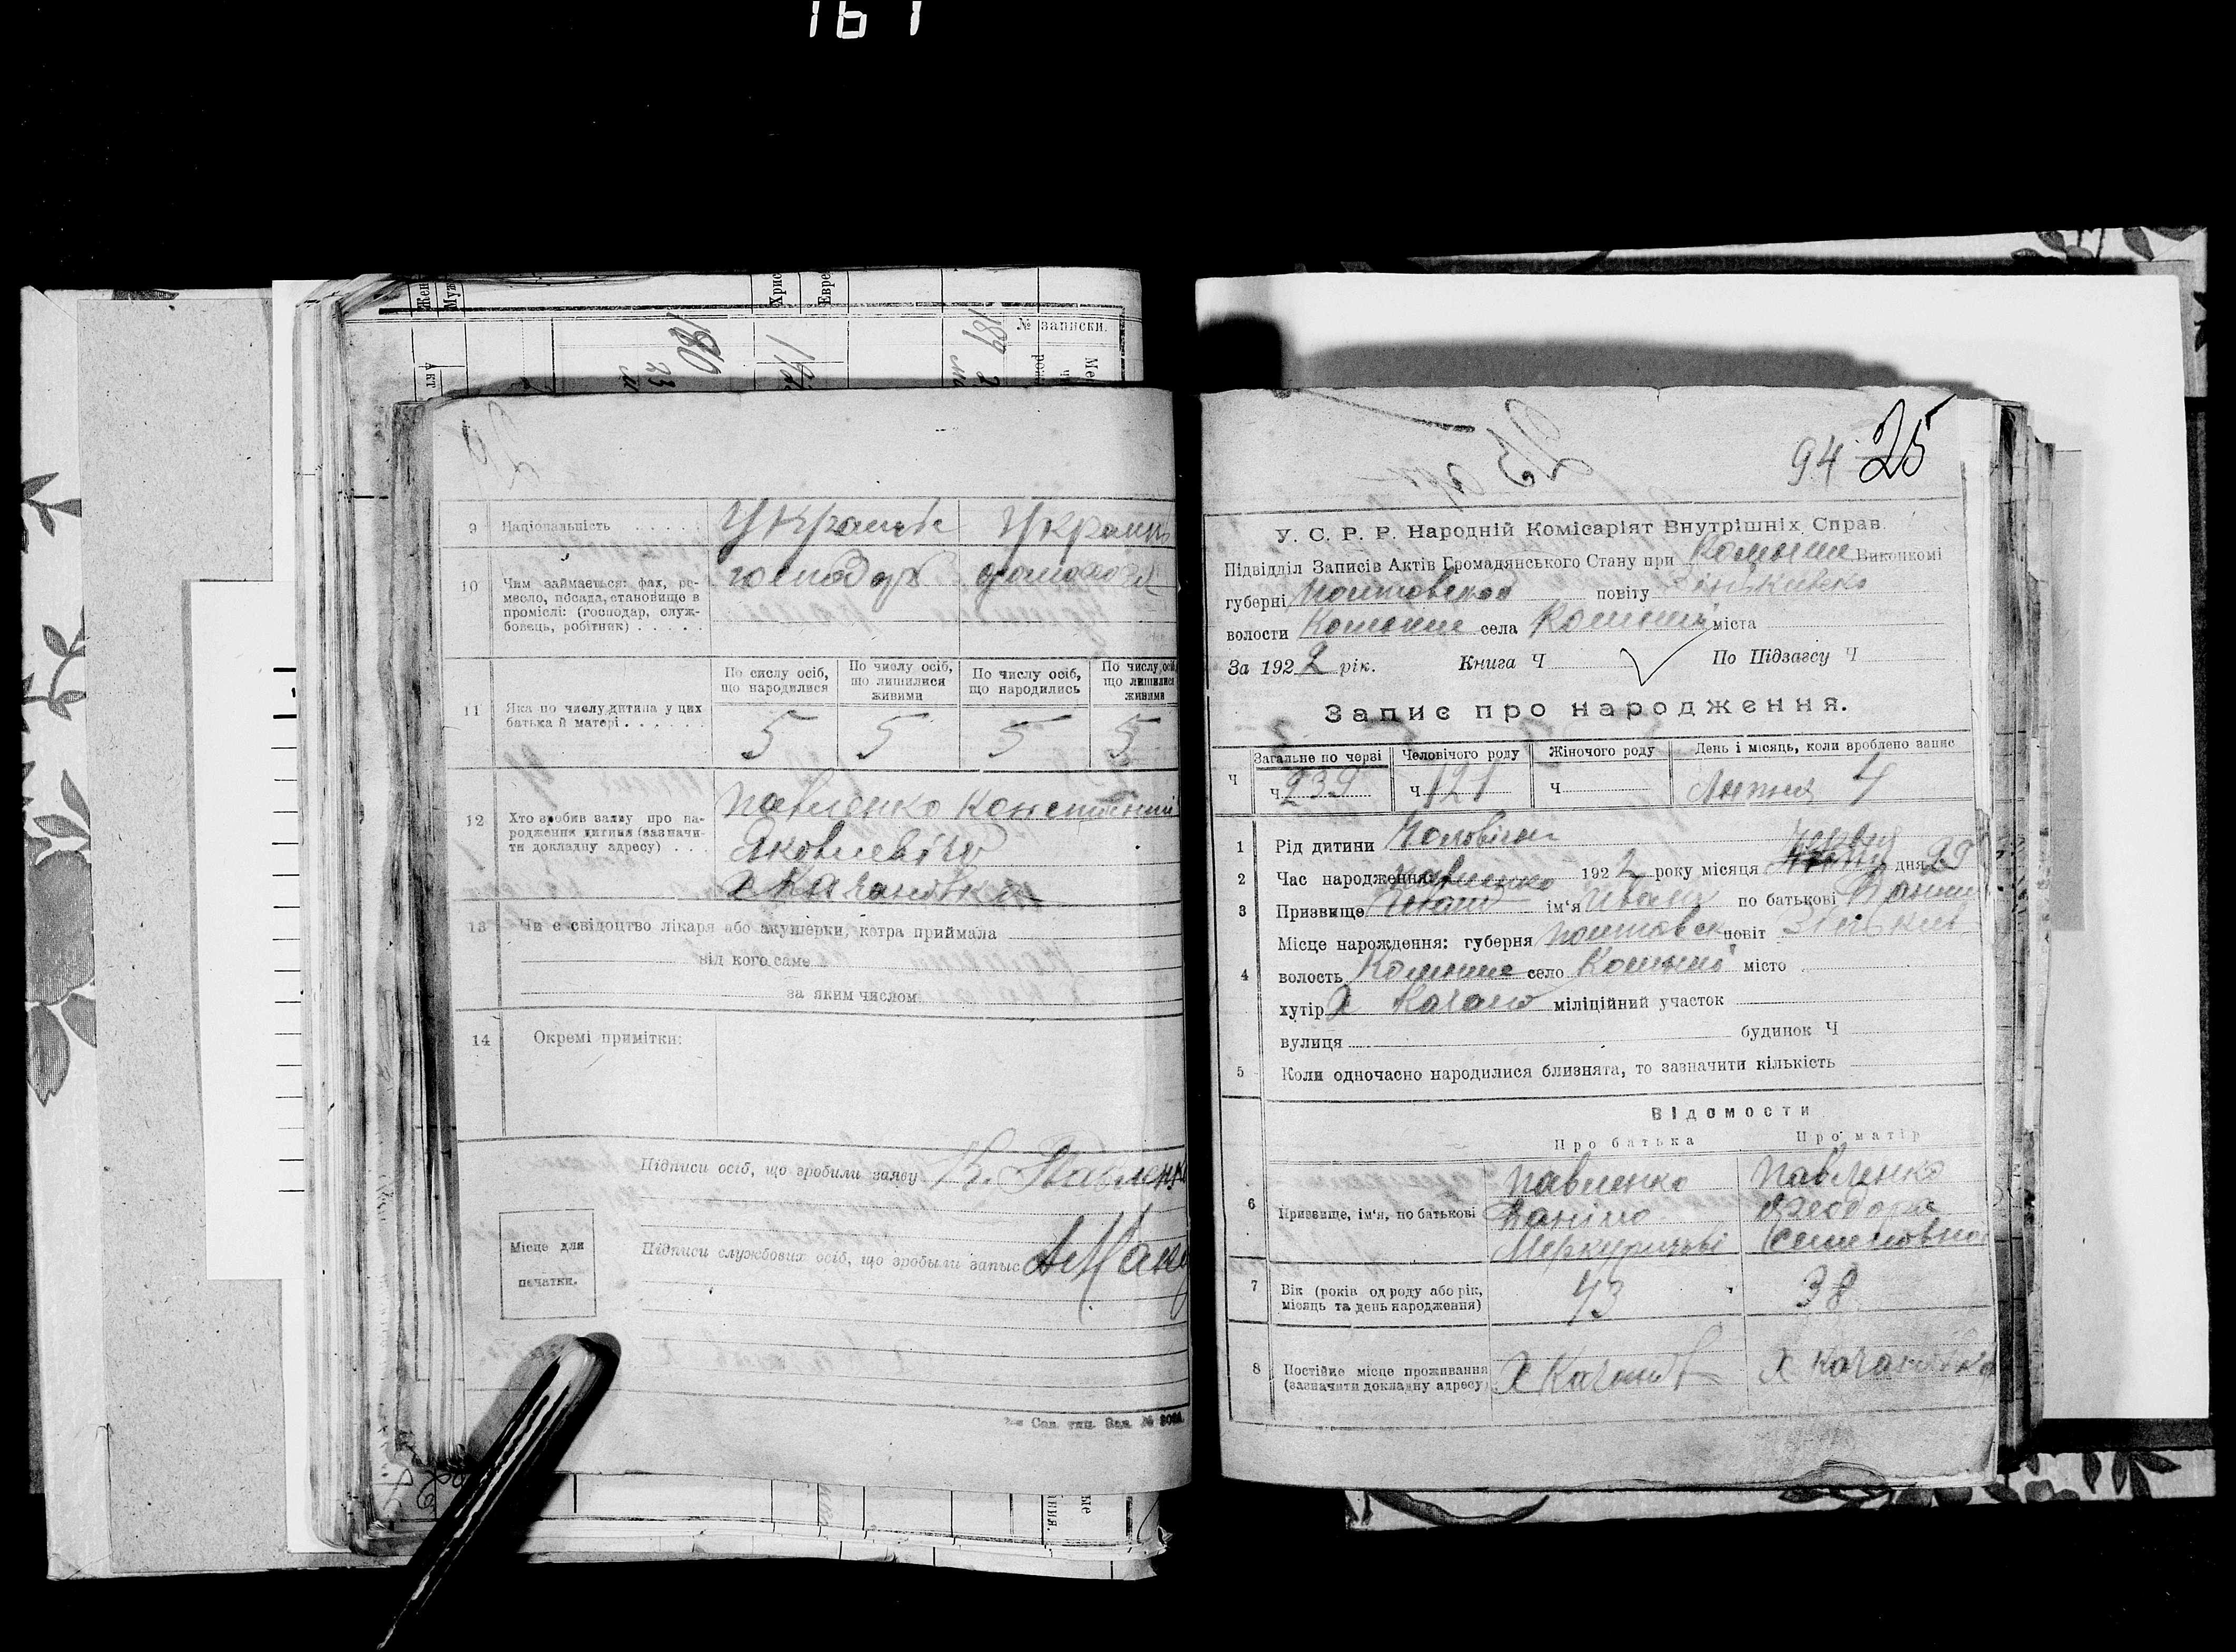 161
Жен
Муж
Хрис
Евре
№ записки.
180
23
9 Національність . . . . . Україн Україн
10 Чим займається: фах, ре-
месло, посада, становище в
промислі: (господар, служ-
бовець, робітник) . . . . .
господар
По сислу осіб, що народилися
По числу осіб, що лишилися живими
По числу осіб, що народились
По числу осіб що лишилися живими
11 Яка по числу дитина у цих
батька й матері . . . . . .
5 5 5 5
12 Хто зробив заяву про на-
родження дитини (зазначи-
ти докладну адресу) . . .
Павленко Констянтин
Яковлевіч
х Качанівка
13 Чи є свідоцтво лікаря або акушерки, котра приймала
від кого саме
за яким числом
14 Окремі примітки:
Підписи осіб, що зробили заяву К. Павленк
Місце для
печатки.
Підписи службових осіб, що зробили запис
Сад. тип. Зад. №
94 25
У. С. Р. Р. Народній Комісаріят Внутрішніх Справ.
Підвідділ Записів Актів Громадянського Стану при Комыше Виконкомі
губерні Полтовской повіту Зіньківско
волости Комыше села Комыші міста
За 1922 рік. Книга Ч По Підзагсу Ч
Запис про народження.
Загальне по черзі Человічого роду Жіночого роду День і місяць, коли зроблено запис
Ч Ч 239 Ч 121 Ч Липня 4
1 Рід дитини Чоловічи
2 Час народження 1922 року місяця Червня дня 29
3 Призвище Павленко ім'я Иван по батькові Данил
Місце народження: губерня Полтовск повіт Зіньків
4 волость Комыше село Комыші місто
хутір х Качано міліційний участок
вулиця будинок Ч
5 Коли одночасно народилися близнята, то зазначити кількість
Відомости
Про батька Про матір
6 Призвище, ім'я, по батькові
Павленко
Даніло
Меркуриеві
Павленко
Феодора
Семеновна
7 Вік (років од роду або рік,
місяць та день народження)
43 38
8 Постійне місце проживання
(зазначити докладну адресу)
х Качанів х Качанівка